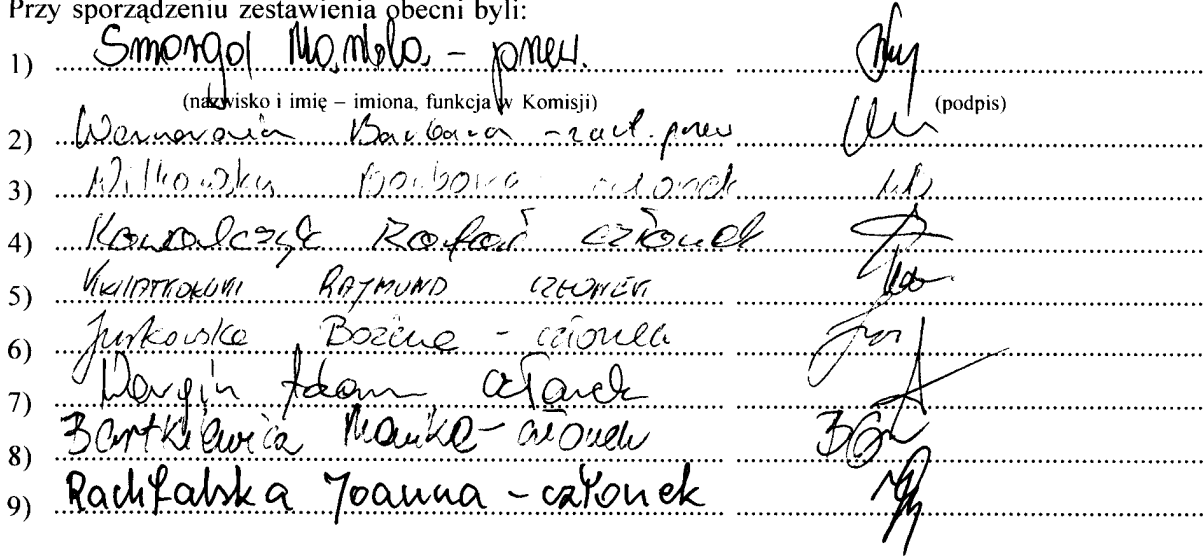 Przy sporządzeniu zestawienia obecni byli:
1) Smorgol – przew.
(nazwisko i imię – imiona, funkcja w Komisji) (podpis)
2) Barbara – zast. przew
3) Wilkowska Barbara członek
4) Kowalczyk Rafał członek
5) KWIATKOWSKI RAJMUND CZŁONEK
6) Jurkowska Bożena – członek
7) Wargin Adam członek
8) Bartkiewicz Marika – członek
9) Rachfalska Joanna – członek